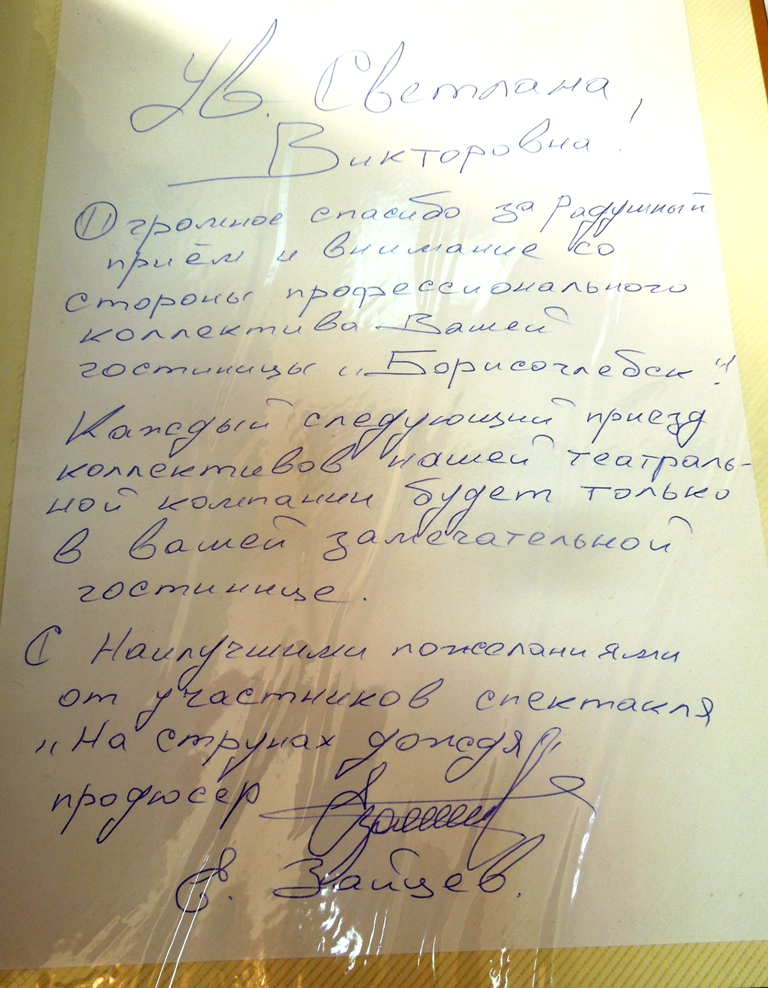 Ув. Светлана
Викторовна!
Огромное спасибо за Радушный
приём и внимание со
стороны профессионального
коллектива Вашей
гостиницы „Борисоглебск"!
Каждый следующий приезд
коллективов нашей театраль-
ной компании будет только
в вашей замечательной
гостинице.
С Наилучшими пожеланиями
от участников спектакля
„На струнах дождя"
продюсер
Зайцев.